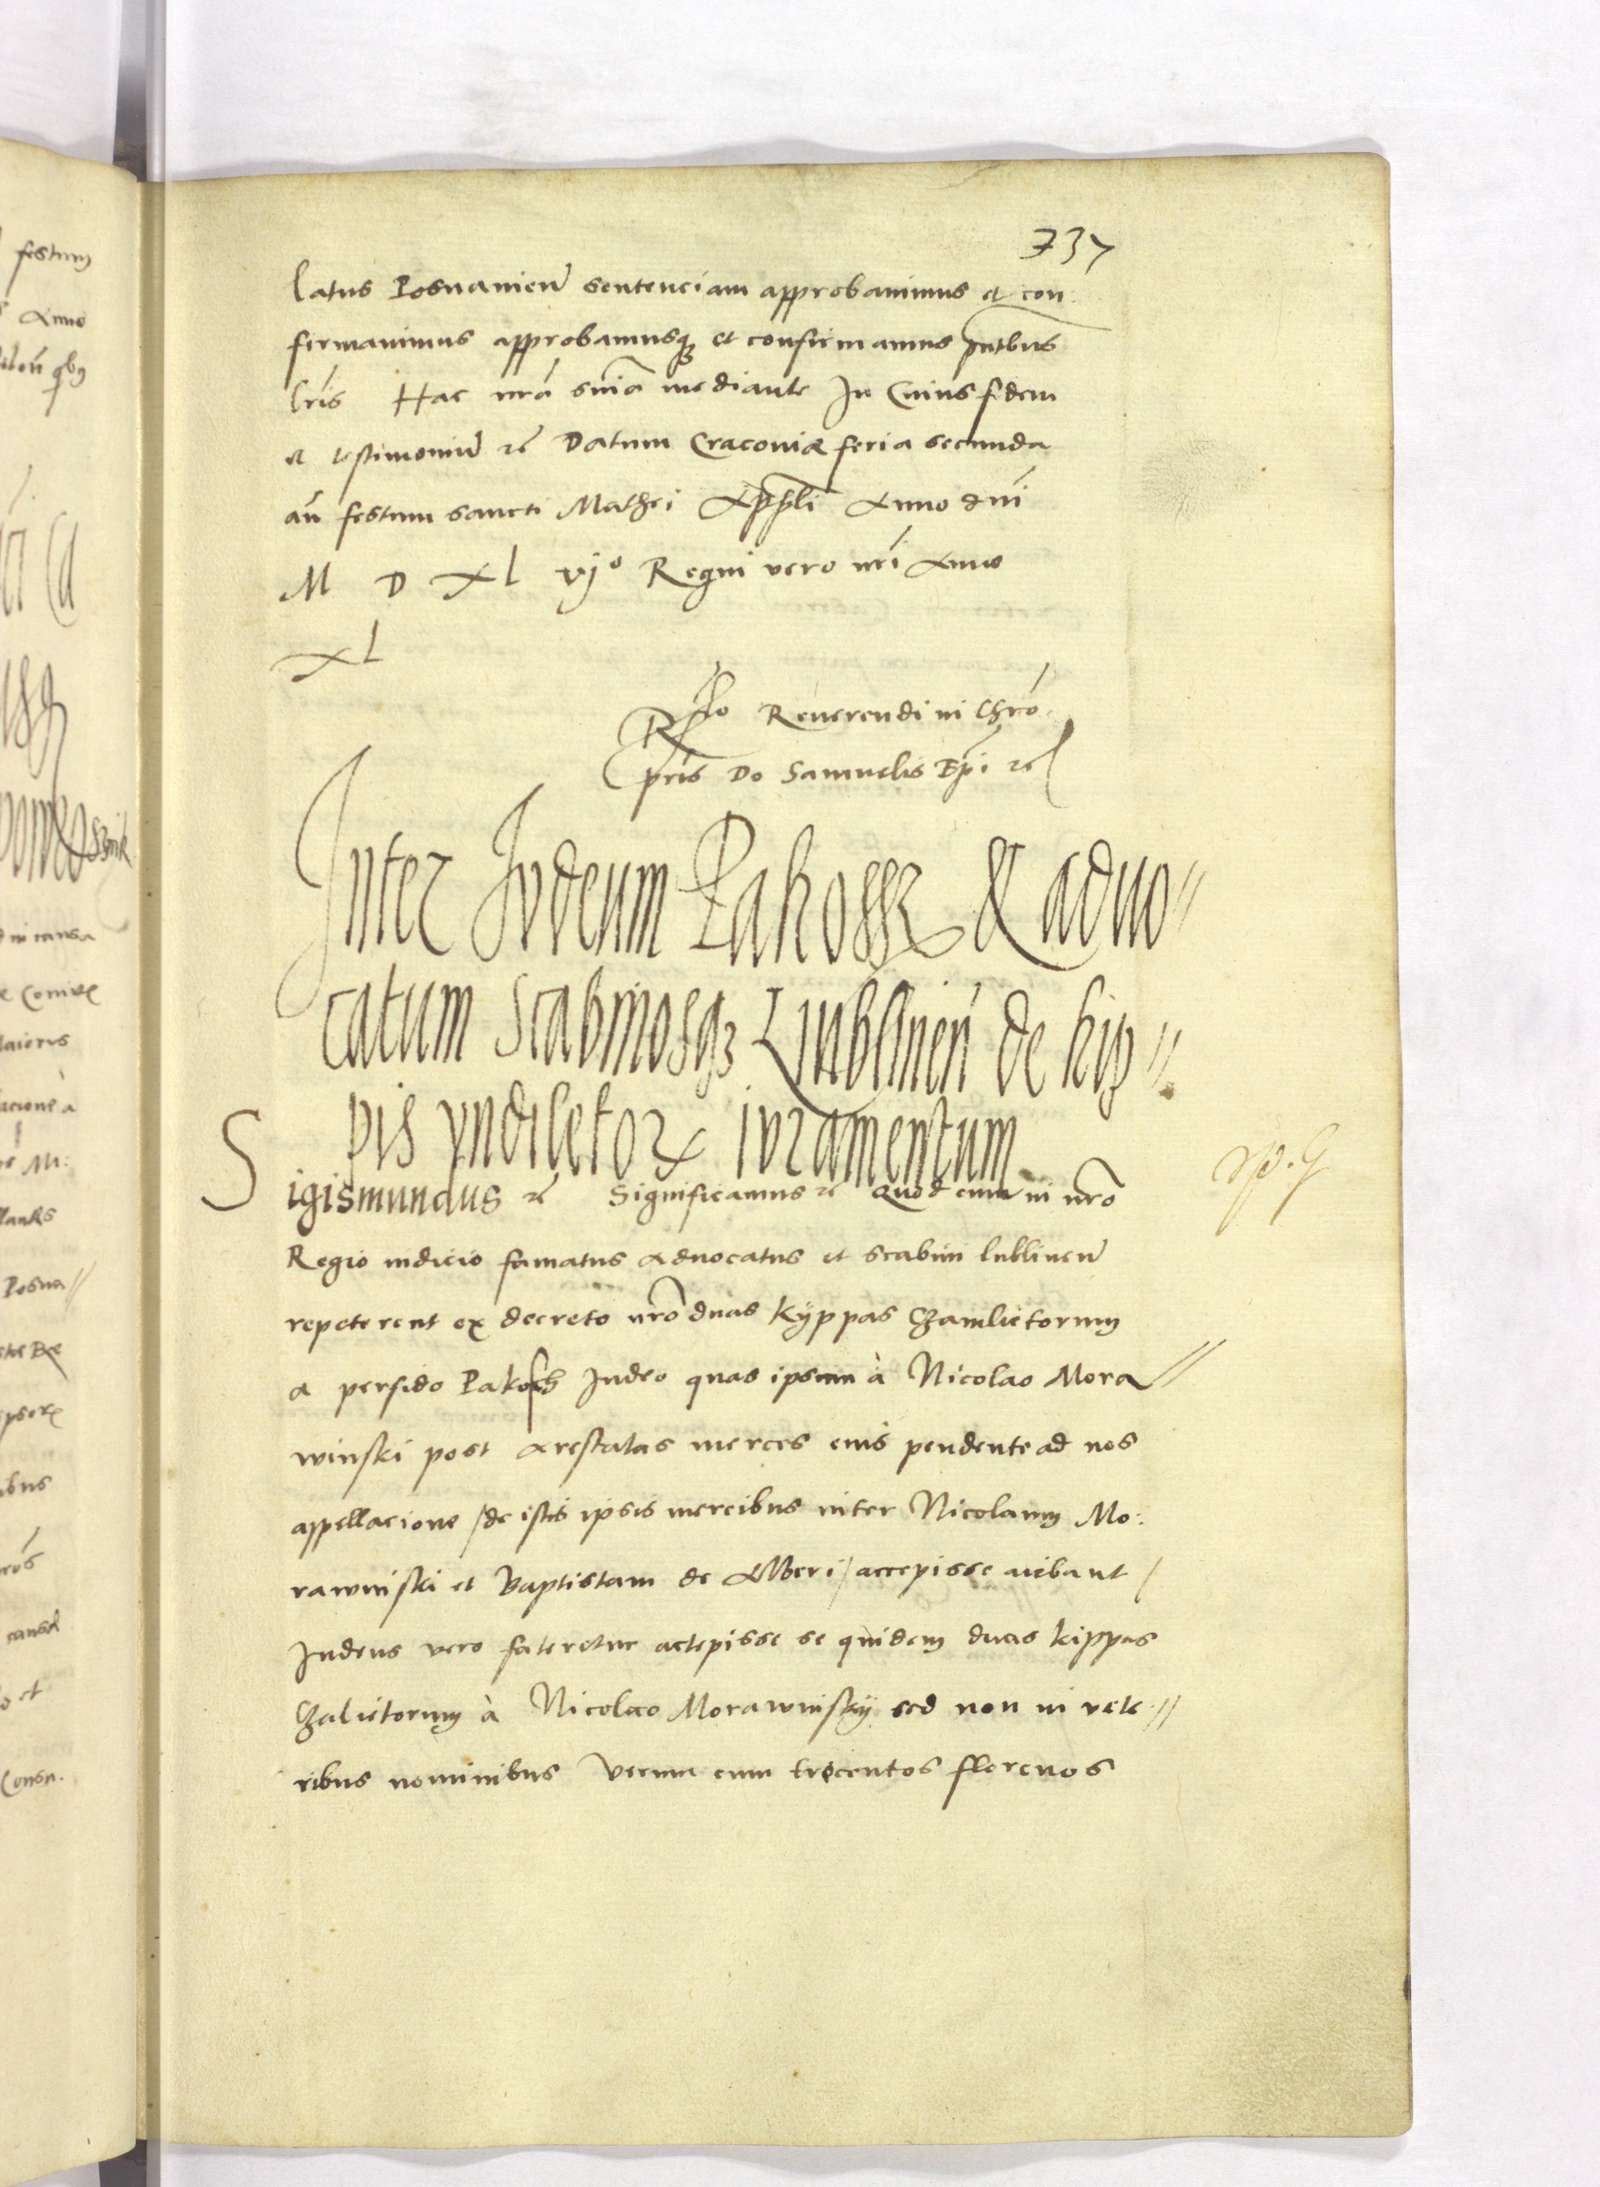 737
latus Posnanien̄ sentenciam approbavimus et con:
firmavimus approbamusq; et confirmamus pn̄tbus
lr̄is Hac nr̄a sn̄ia mediante In Cuius fidem
et testimoniū rc̄ Datum Cracoviæ feria secunda
an̄ festum sancti Mathei App̄li Anno dn̄i
M D XL vijº Regni vero nr̄i Anno
XL
Rlo Reverendi in Chrō
pr̄is Do Samuelis Ep̄i rc̄
Inter Judeum Pakossz & aduo//
catum scabinosq; Lublinen̄ de kip//
pis yndiletor iuramentum
Sigismundus rc̄ Significamus rc̄ Quod cum in nr̄o
Regio iudicio famatus Advocatus et scabini lublinen̄
repeterent ex decreto nr̄o duas kÿppas Czamletorum
a perfido Pakosch Iudeo quas ipsum à Nicolao Mora//
winski post Arestatas merces eius pendente ad nos
appellacione / de istis ipsis mercibus inter Nicolaum Mo:
rawinski et Baptistam de Alberi / accepisse aiebant /
Iudeus vero fateretur accepisse se quidem duas kippas
Czaletorum à Nicolao Morawinskÿ sed non in vete//
ribus nominibus Verum cum trecentos florenos